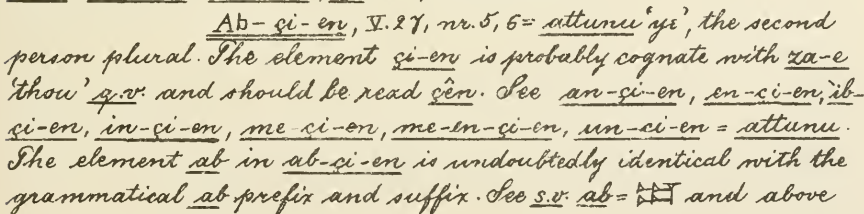 Ab-çi-en, V. 27, nr. 5, 6 = attunu 'ye', the second
person plural. The element çi-en is probably cognate with za-e
'thou' q.v. and should be read çên. See an-çi-en, en-çi-en, ib-
çi-en, in-çi-en, me-çi-en, me-en-çi-en, un-çi-en = attunu.
The element ab in ab-çi-en is undoubtedly identical with the
grammatical ab prefix and suffix. See s.v. ab = and above